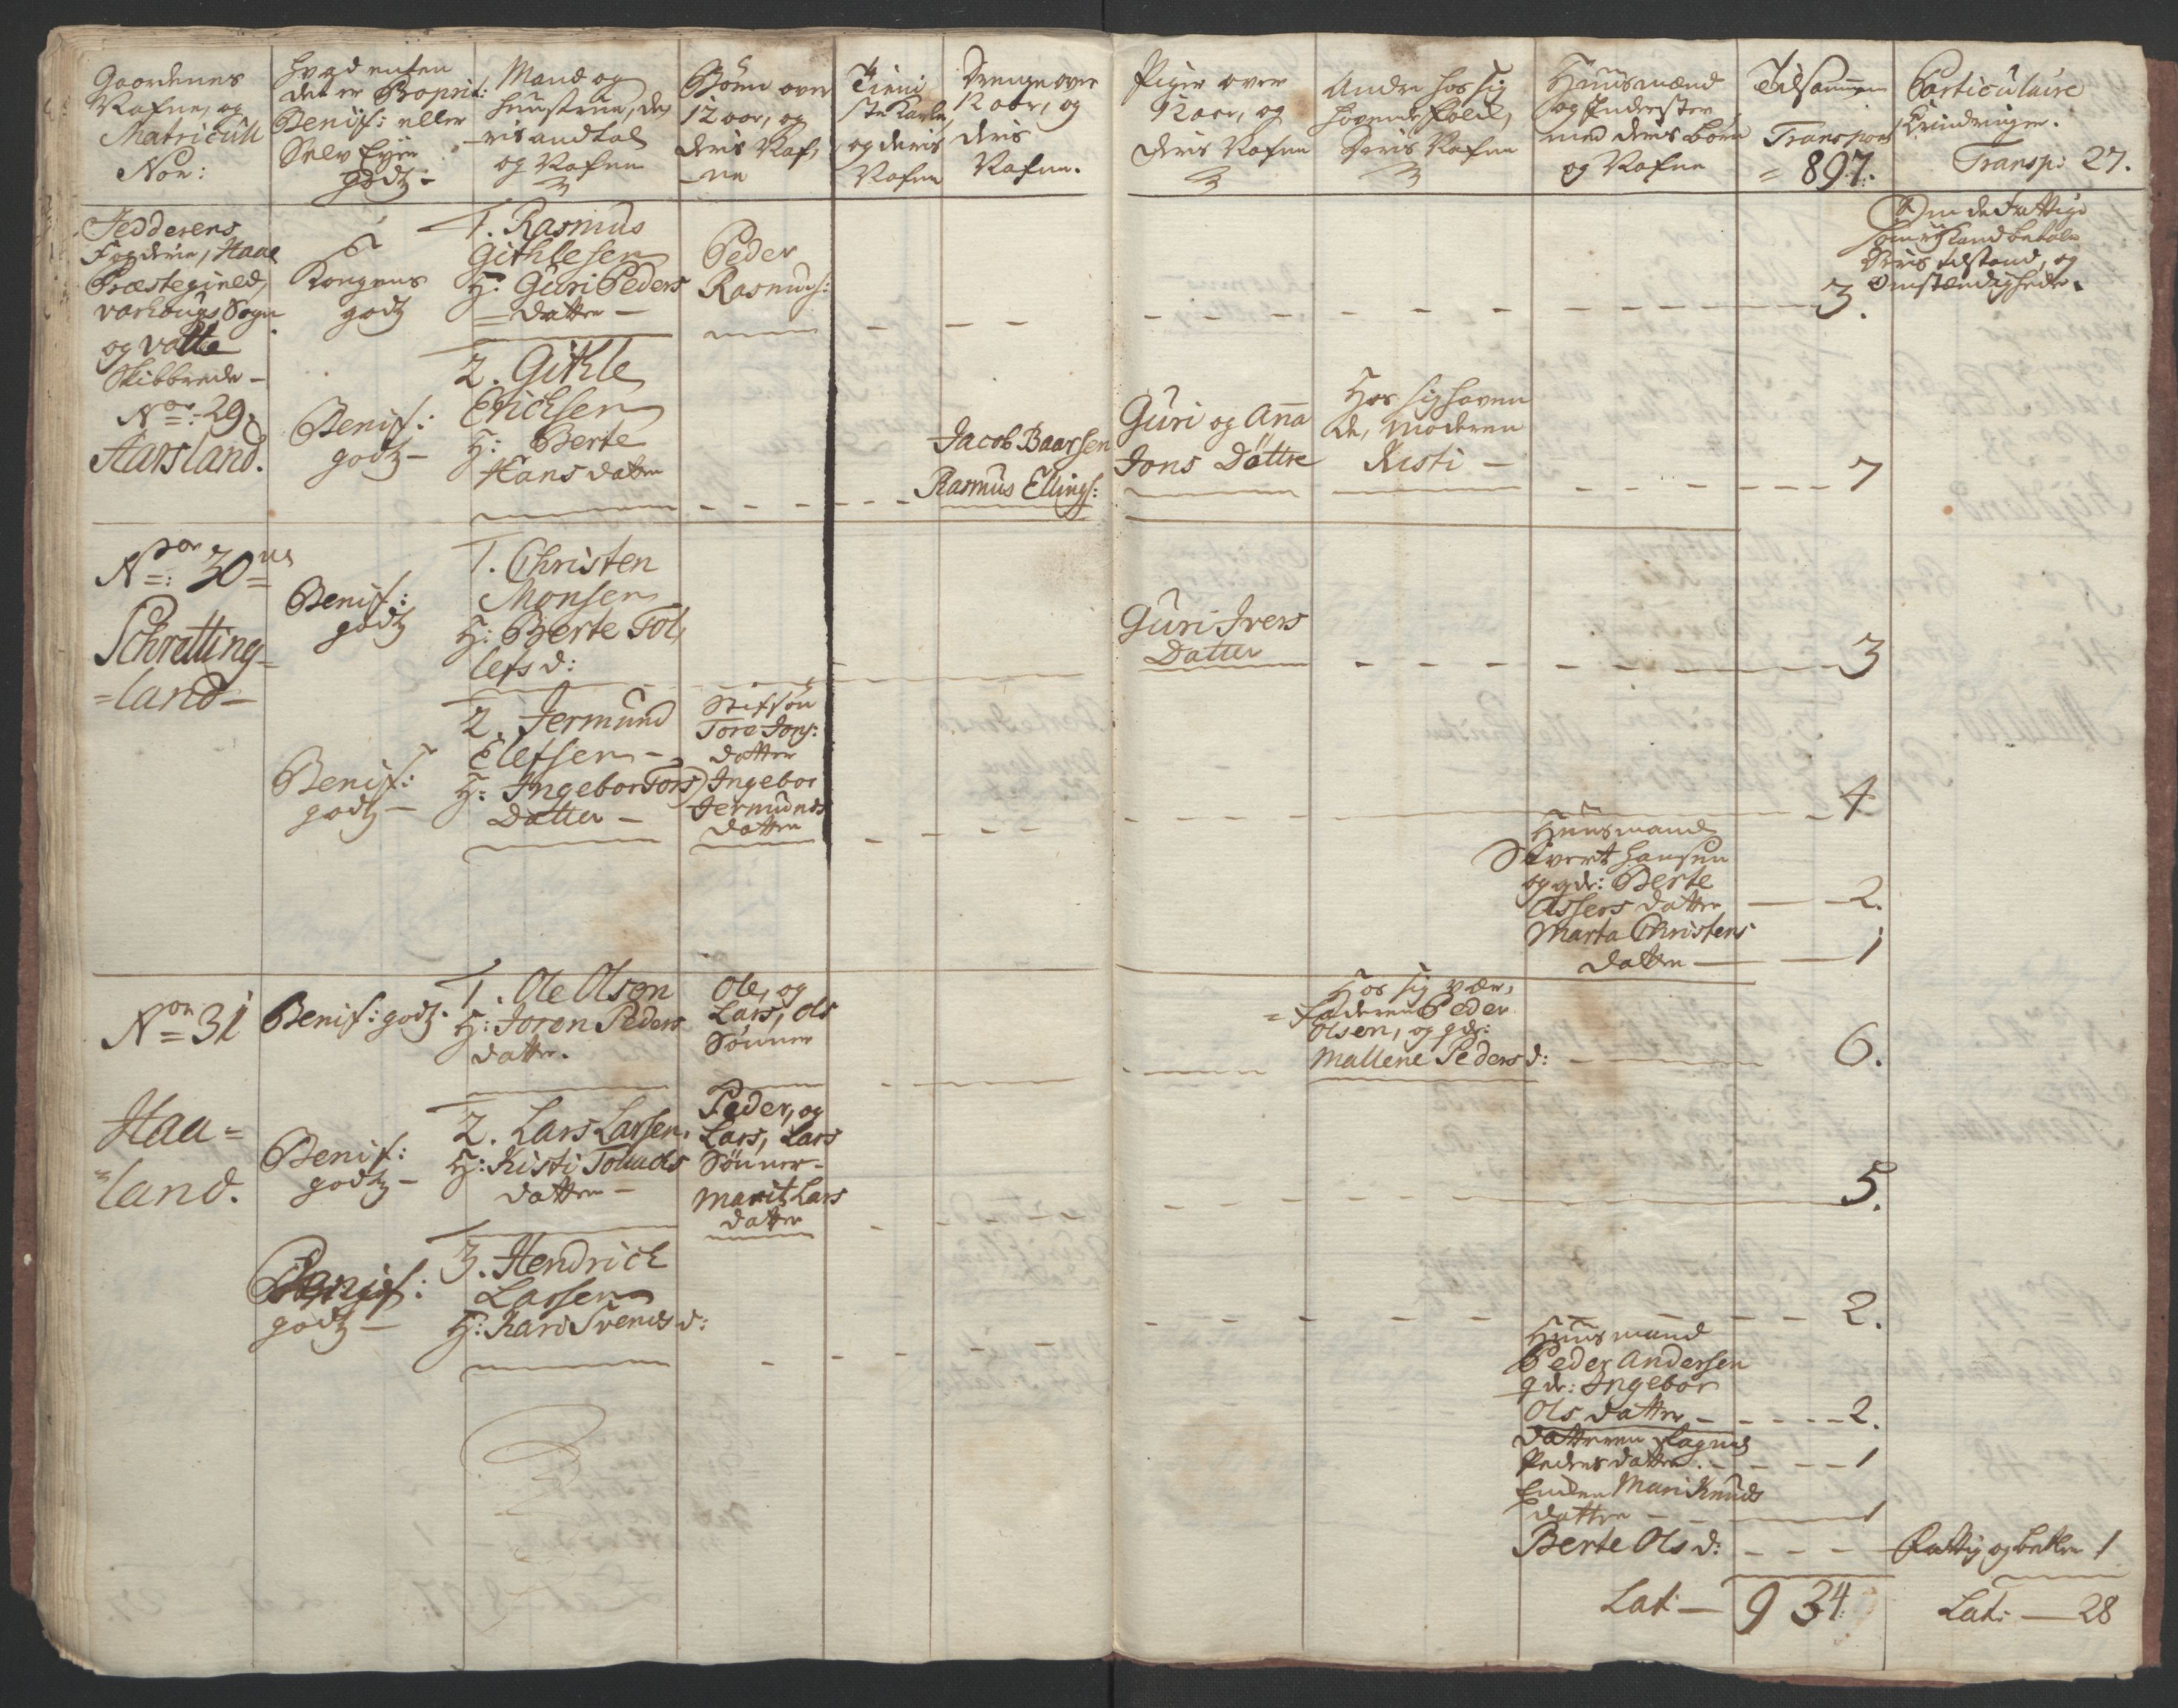 Gaardenes
Nafne, og
Matricul
Noe:
Hvad enten
det er Proprit:
Benif: eller
Selv Eyer
godtz -
Mand og
Huustrue, de,
ris andtal
og Nafne
Børn over
12 aar, og
deris Naf,
ne
Tieni
ste Karle,
og deris
Nafne
Drenge over
12 aar, og
deris
Nafne.
Piger over
12 aar, og
deris Nafne
Andre hos sig
hævende folck,
deris Nafne
Huusmænd
og Inderster
med deris børn
og Nafne
Tilsammen
Transport
= 897.
Particulaire
Erindringer.
Transp: 27.
Jedderens
Fogderie, Haae
Præstegield,
varhougs Sogn
og Vatte
Skibbrede -
No: 29.
Aarsland.
Kongens
godtz
1. Rasmus
Githlesen
H: Guri Peders
= datter -
Peder
Rasmus:
3.
Om de Fattige
som ej kand betale
deris tilstand, og
omstændigheder.
Benif:
godtz -
2. Githle
Erichsen
H: Berte
Hans datter
Jacob Baarsen
Rasmus Ellings:
Guri og Anna
Jons Døttre
Hos sig haven
de, Moderen
Kisti -
7
No: 30
Schretting-
=land -
Benif:
godtz
1. Christen
Monsen
H: Berte Tol,
lefs d:
Guri Ivers
Datter
3
Benif:
godtz -
2. Jermund
Elefsen -
H: Ingebor Tors
Datter -
Stifsøn
Tore Jons:
datter
Ingebor
Jermunds
datter
4
Huusmand
Sivert Hansen
og qde: Berte
Assers datter - 2.
Marta Christens
datter - 1
No 31
Haa=
=land.
Benif: godtz.
1. Ole Olson
H: Joron Peders
datter.
Ole, og
Lars, Ols
Sønner
Hos sig vær,
= Faderen Peder
Olsen, og qde:
Mallene Peders d:
6.
Benif:
godtz -
2. Lars Larsen.
H: Kisti Tollacks
datter -
Peder, og
Lars, Lars
Sønner -
Marit Lars
datter
5.
Benif:
godtz -
3. Hendrich
Larsen
H: Kari Svends d:
2.
Huusmand
Peder Andersen
qde: Ingebor
Ols datter - 2.
datteren Magnild
Peders datter. - 1
Enken Mari Knuds
datter - 1
Berte Ols d: - - - Fattig og betler 1
Lat: - 934
Lat: - 28